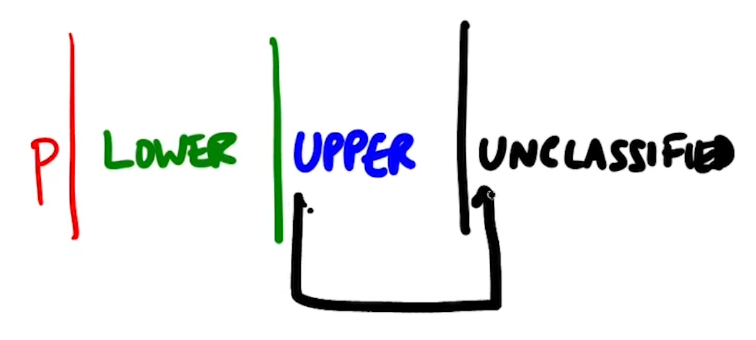 P LOWER UPPER UNCLASSIFIED